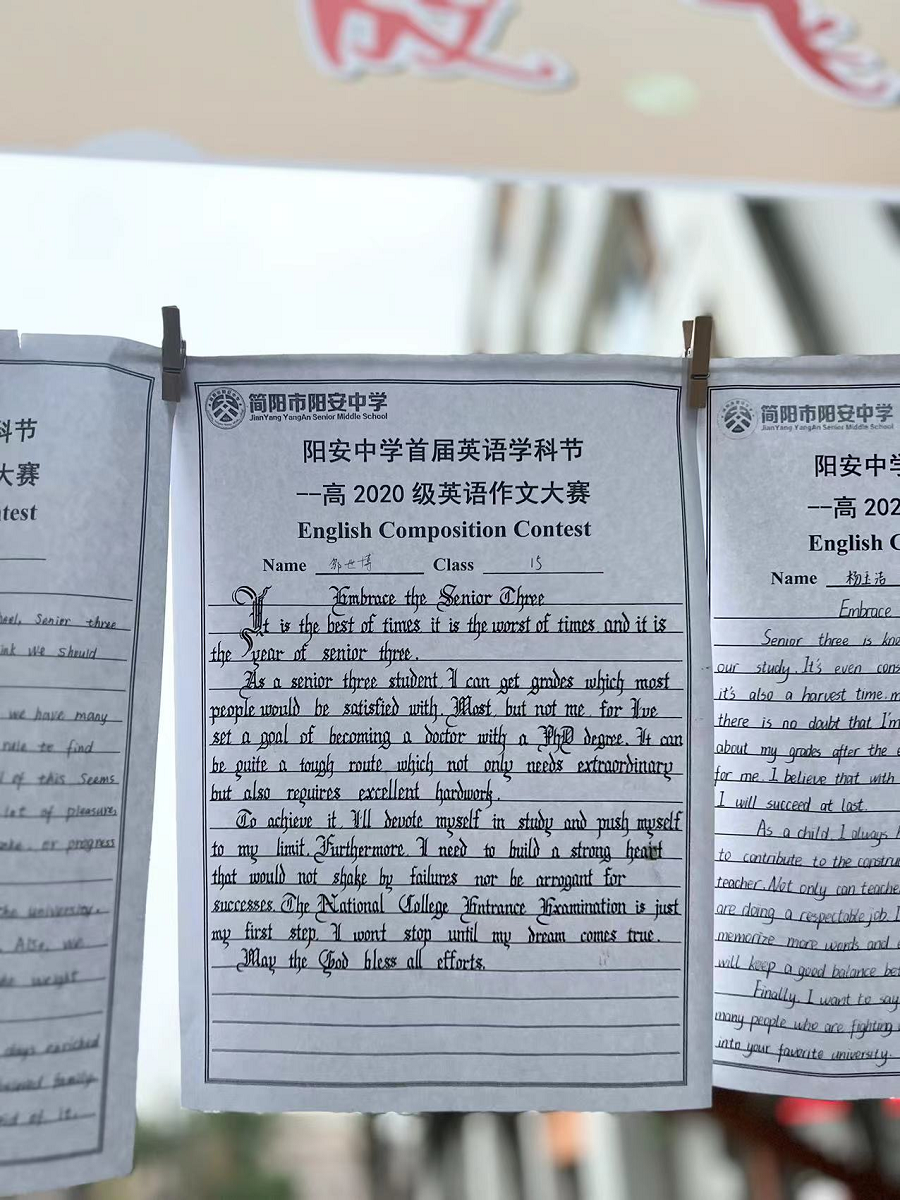 简阳市阳安中学
JianYang YangAn Senior Middle School
阳安中学首届英语学科节
--高 2020 级英语作文大赛
English Composition Contest
Name 邹世博 Class 15
Embrace the Senior Three
It is the best of times, it is the worst of times, and it is
the year of senior three.
As a senior three student, I can get grades which most
people would be satisfied with. Most, but not me, for I've
set a goal of becoming a doctor with a PhD degree. It can
be quite a tough route which not only needs extraordinary
but also requires excellent hardwork.
To achieve it, I'll devote myself in study and push myself
to my limit. Furthermore, I need to build a strong heart
that would not shake by failures nor be arrogant for
successes. The National College Entrance Examination is just
my first step. I won't stop until my dream comes true.
May the God bless all efforts.
科节
大赛
ntest
Senior three
ink we should
we have many
to find
of this seems
lot of pleasure,
or progress
the university.
Also, we
weight
days enriched
family
of it.
简阳市阳安中学
JianYang YangAn Senior Middle School
阳安中学
--高 202
English C
Name 杨主洁
Embrace
Senior three is kno
our study. It's even cons
it's also a harvest time.
there is no doubt that I'm
about my grades after the e
for me. I believe that with
I will succeed at last.
As a child, I always h
to contribute to the constru
teacher. Not only can teache
are doing a respectable job, I
memorize more words and e
will keep a good balance be
Finally, I want to say
many people who are fighting
into your favorite university.